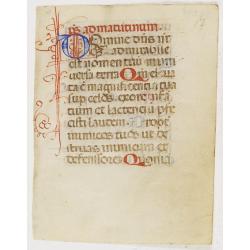 ps ad matutinum
Domine dūs nr̄
admirabile
est nomen tuū ī uni
versa terra Qm̄ eleva
ta ē magnificentia tua
sup celos. ex ore infā
tium et lactentiū pfe
cisti laudem. propt
inimicos tuos ut de
struas inimicum et
defensorem Quonia